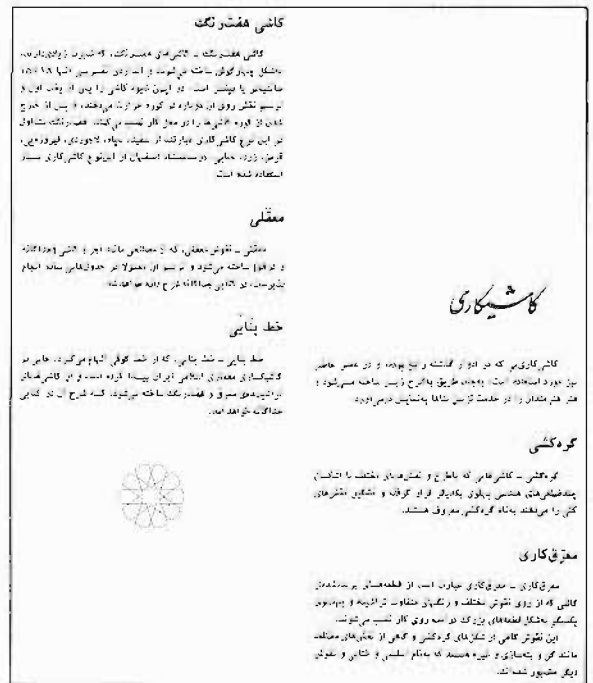 کاشیکاری
کاشی‌کاری‌یی که در ادوار گذشته رایج بوده، و در عصر حاضر
نیز مورد استفاده است، به‌چند طریق به‌شرح زیر ساخته می‌شود و
هنر هنرمندان را در خدمت تزیین بناها به‌نمایش درمی‌آورد.
گره‌کشی
گره‌کشی ـ کاشی‌هایی که باطرح و نقش‌های مختلف با اشکال
چندضلعی‌های هندسی پهلوی یکدیگر قرار گرفته و نقش‌های
کلی را می‌دهند به‌نام گره‌کشی معروف هستند.
معرّق‌کاری
معرق‌کاری ـ معرق‌کاری عبارت است از قطعه‌های بریده‌شده‌ی
کاشی که از روی نقوش مختلف و رنگهای متفاوت تراشیده و پهلوی
یکدیگر به‌شکل قطعه‌های بزرگ درآمده روی کار نصب می‌شوند.
این نقوش گاهی از شکل‌های گره‌کشی و گاهی از نقش‌های مختلف
مانند گل و بته‌سازی و غیره هستند که به‌نام اسلیمی و ختایی و نقوش
دیگر مشهور شده‌اند.
کاشی هفت‌رنگ
کاشی هفت‌رنگ ـ کاشی‌های هفت‌رنگ، که شهرت زیادی دارند،
به‌شکل چهارگوش ساخته می‌شوند و اندازه‌ی تقریبی آنها ۱۵×۱۵
سانتیمتر یا بیشتر است. در این شیوه کاشی را پس از پخت اول و
ترسیم نقش روی آن دوباره در کوره حرارت می‌دهند، و پس از خارج
شدن از کوره کاشی‌ها را در محل کار نصب می‌کنند. هفت‌رنگ متداول
در این نوع کاشی‌کاری عبارتند از: سفید، سیاه، لاجوردی، فیروزه‌یی،
قرمز، زرد، حنایی. در مساجد اصفهان از این‌نوع کاشی‌کاری بسیار
استفاده شده است.
معقلی
معقلی ـ نقوش معقلی، که از مصالحی مانند آجر و کاشی
ساخته می‌شود و ترسیم آن معمولا در جدول‌هایی ساده انجام
پذیر است، در کتابی جداگانه شرح داده خواهد شد.
خط بنایی
خط بنایی ـ خط بنایی، که از خط کوفی الهام می‌گیرد، جایی در
کاشیکاری معماری اسلامی ایران پیدا کرده است و در کاشی‌های
معرق و هفت‌رنگ ساخته می‌شود، که شرح آن در کتابی
جداگانه خواهد آمد.